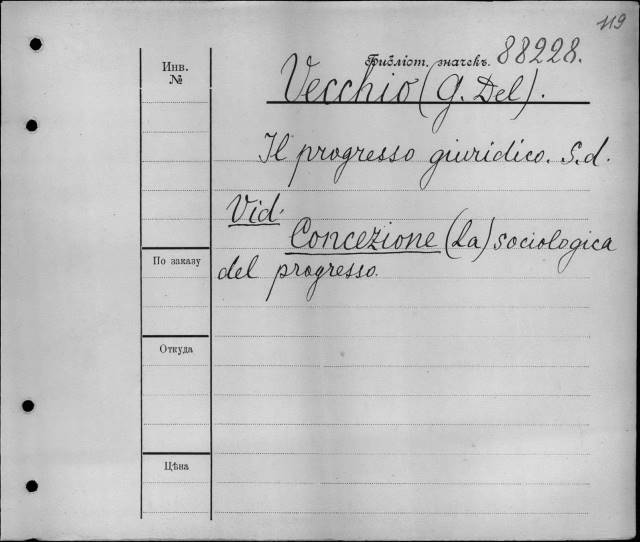 119
Инв.
№
Библіот. значекъ. 88228.
Vecchio (G. Del).
Il progresso giuridico. S.d.
Vid.
Concezione (La) sociologica
del progresso.
По заказу
Откуда
Цѣна